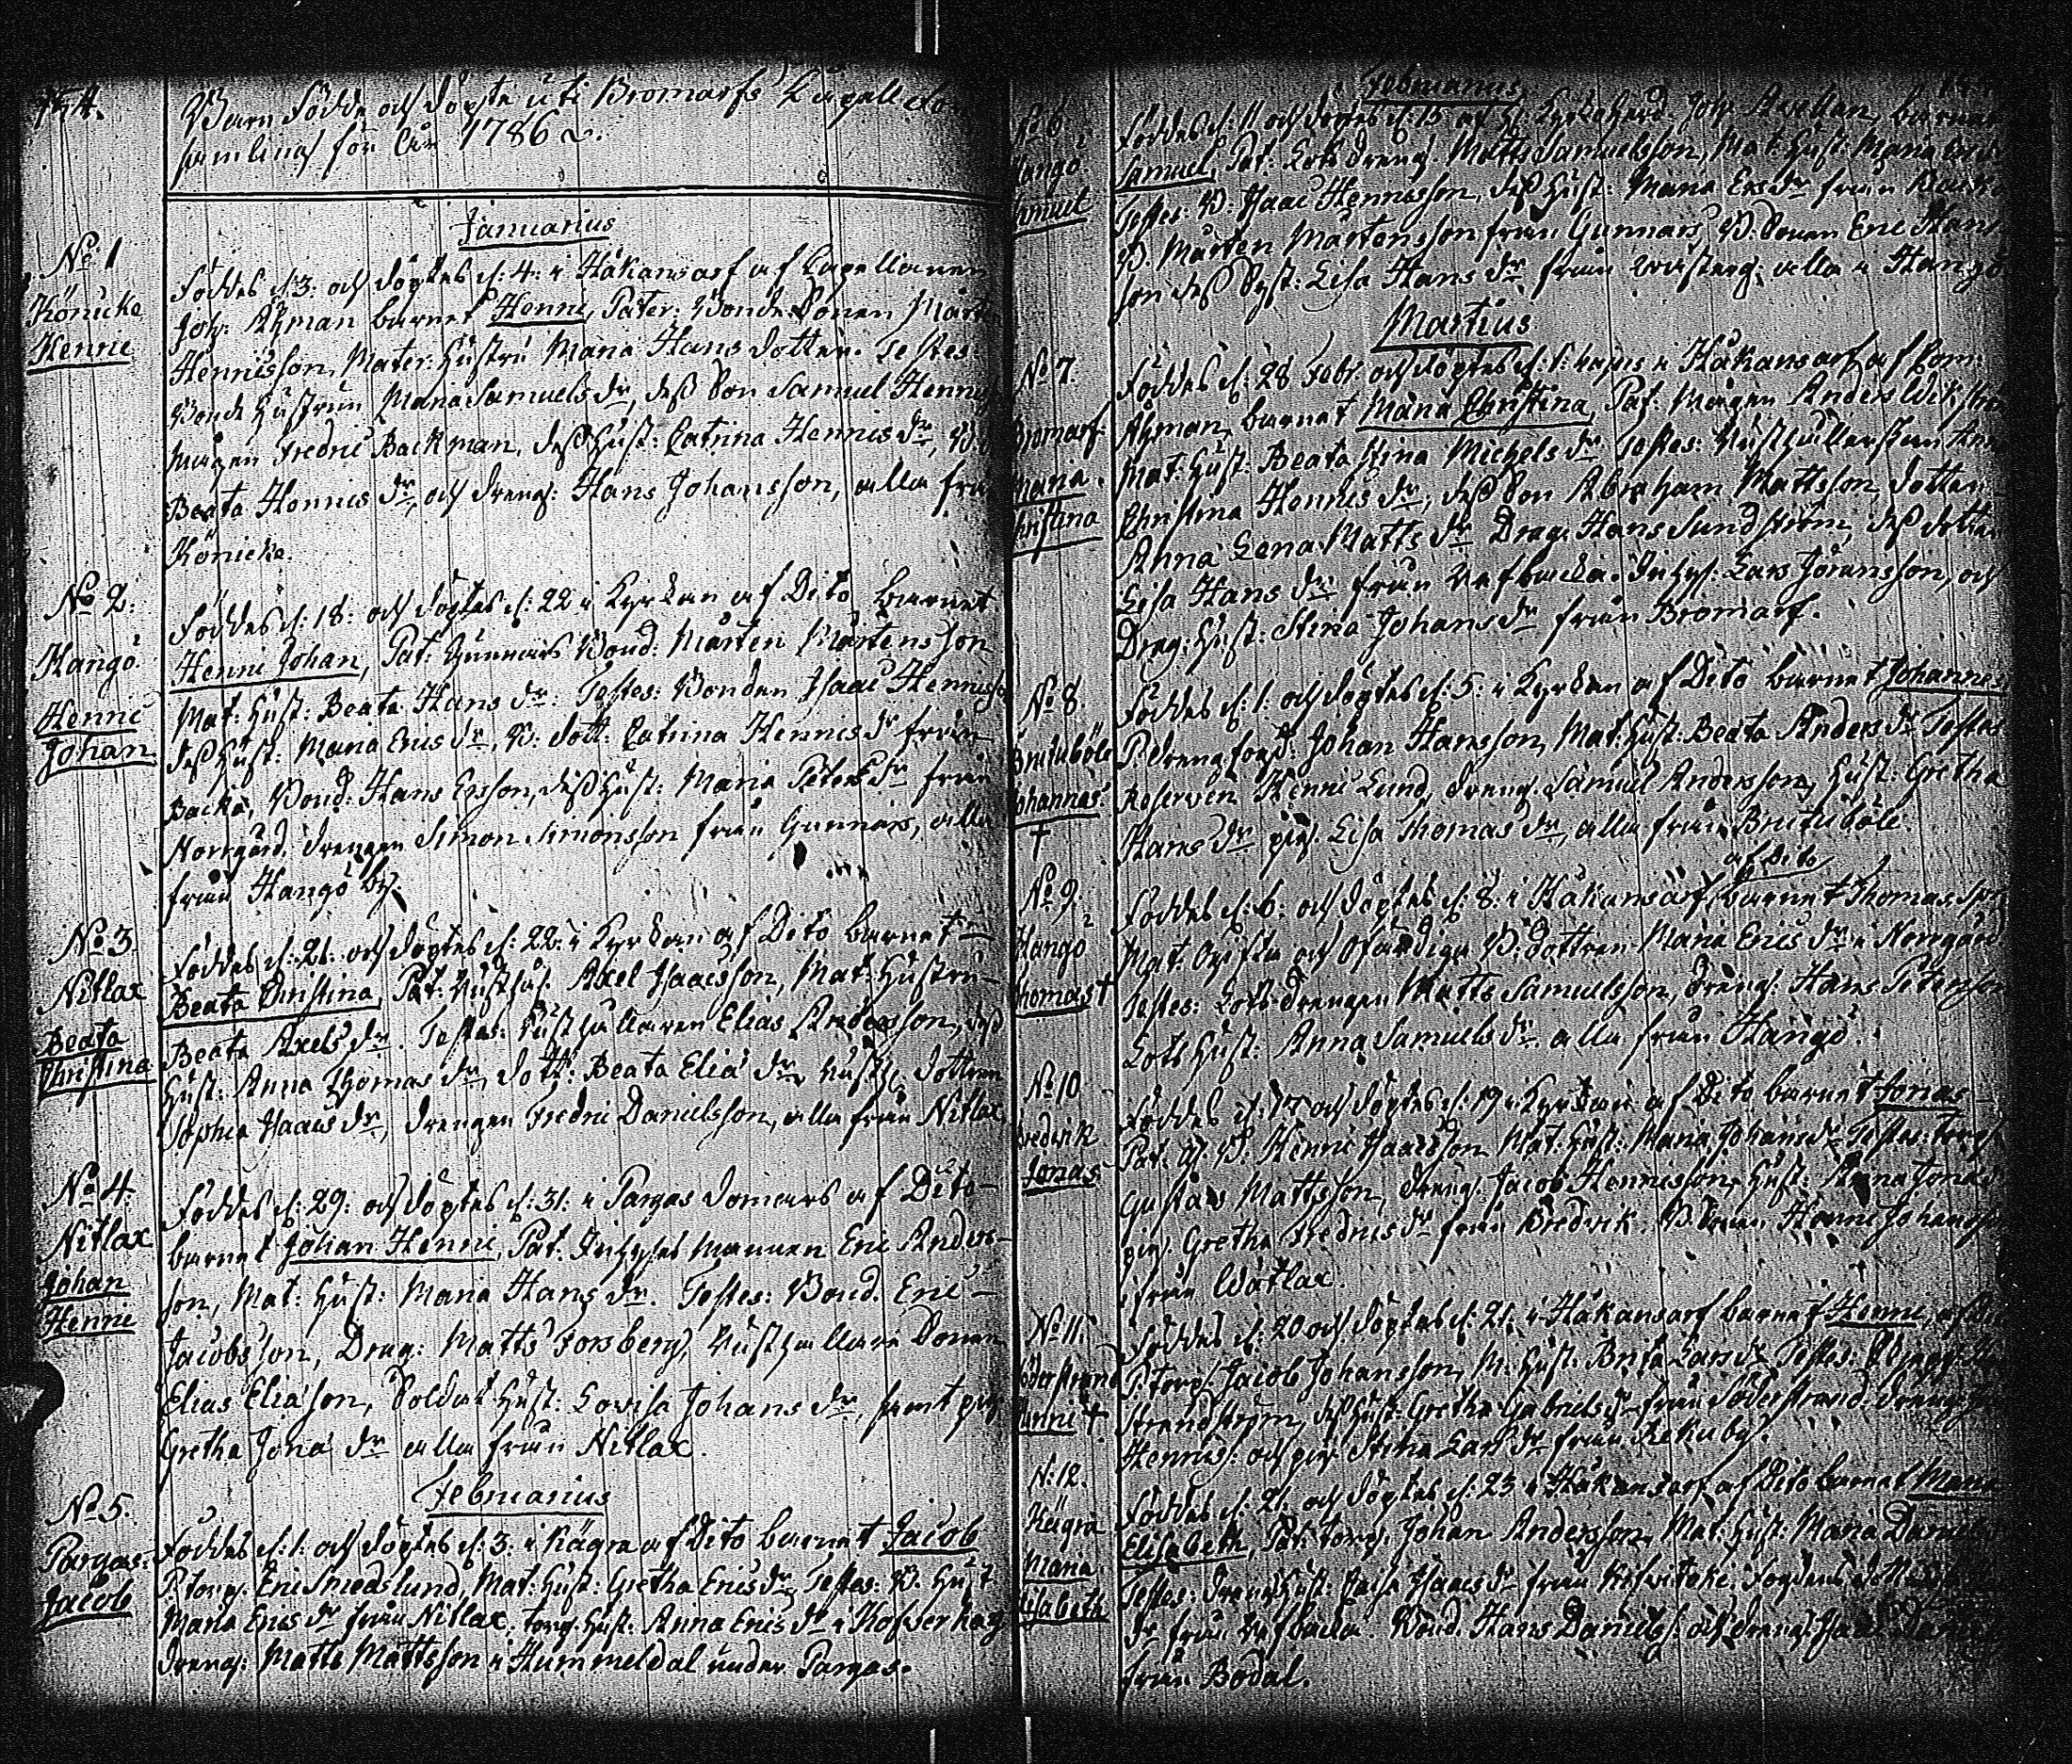 154.
Barn Födde och Döpte uti Bromarfs Capell
samling för år 1786
Januarius
No 1
Könicke
Henric
Föddes d: 3: och döptes d: 4: i Håkansarf af Capellanen
Joh: Åhman barnet Henric, Pater: Bonde Sonen Mårt
Henricsson, Mater: Hustru Maria Hans dotter. Testes:
Bonde Hustrun Maria Samuels dr, dess Son Samuel Henrics
mågen Fredric Backman, dess Hust: Catrina Henrics dr, B:
Beata Henrics dr, och dreng: Hans Johansson, alla från
Könicke.
No 2:
Hangö
Henric
Johan
Föddes d: 18: och döptes d: 22 i Kyrkan af Dito, barnet
Henric Johan, Pat: Gunnars Bond: Mårten Mårtensson
Mat: Hust: Beata Hans dr: Testes: Bonden Isaac Henricsso
dess Hust: Maria Erics dr, B: dott: Catrina Henrics dr från
Backa, Bond: Hans Ersson, dess Hust: Maria Peters dr från
Norrgård, drengen Simon Simonsson från Gunnars, alla
från Hangö by.
No 3
Nitlax
Beata
Christina
Föddes d: 21: och döptes d: 22: i Kyrkan af Dito barnet
Beata Christina, Pat: Rusth: Axel Isaacsson, Mat: Hustru
Beata Axels dr. Testes: Rusthållaren Elias Andersson, dess
Hust: Anna Thomas dr, dott: Beata Elia dr, Rusth: dottren
Sophia Isaacs dr, drengen Fredric Danielsson, alla från Nitlax
No 4.
Nitlax
Johan
Henric
Föddes d: 29: och döptes d: 31: i Pargas Domars af Dito
barnet Johan Henric, Pat: Inhyses mannen Eric Anders-
son, Mat: Hust: Maria Hans dr. Testes: Bond. Eric
Jacobsson, Drag: Matts Forsberg, Rusthållare Sonen
Elias Eliasson, Soldat Hust: Lovisa Johans dr, samt pig
Gretha Jona dr alla från Nitlax.
Februarius
No 5.
Pargas:
Jacob
Föddes d: 1: och döptes d: 3: i Kägra af Dito barnet Jacob
P: torp: Eric Smedslund, Mat: Hust: Gretha Erics dr, Testes: B. Hust
Maria Erics dr från Nitlax, torp: Hust: Anna Erics dr i Kofverhag
dreng: Matts Mattsson i Hummeldal under Pargas.
Februarius
No 6
Hangö
Samuel
Föddes d: 11 och döptes d: 15 af H: Kyrkoherd. Joh: Axellan, barnet
Samuel, Pat: Lots dreng: Matts Samuelsson, Mat: Hust: Maria
Testes: B: Isaac Henricsson, dess Hust: Maria Ers dr från Backa
B. Mårten Mårtensson från Gunnars, B: Sonen Eric Hans
son dess Syst: Lisa Hans dr från alla i Hangö
Martius
No 7.
Bromarf
Maria
Christina
Föddes d: 28 Febr. och döptes d: 1: hujus i Håkansarf af Com:
Åhman, barnet Maria Christina, Pat: Mågen Anders
Mat: Hust: Beata Stina Michels dr Testes: Rusthållerskan Anna
Christina Henrics dr, dess Son Abraham Mattsson, dotter
Anna Lena Matts dr Drag: Hans Sundström, dess dotter
Lisa Hans dr från Refbacka. Inhys: Lars Jöransson, och
Drag: Hust: Stina Johans dr från Bromarf.
No 8.
Brutuböle
Johannes
†
Föddes d: 1: och döptes d: 5: i Kyrkan af Dito barnet Johannes
P: Johan Hansson, Mat: Hust: Beata Anders dr Testes
Reserven Henric Lund, dreng: Samuel Andersson, Hust: Gretha
Hans dr pig. Lisa Thomas dr, alla från Brutuböle.
No 9.
Hangö
Thomas †
Föddes d: 6: och döptes d: 8: i Håkansarf af Dito barnet Thomas
Mat: Ogifta och B: Dottren Maria Erics dr i Norrgård
Testes: Lots drengen Matts Samuelsson, dreng: Hans Petersson
Lots Hust: Anna Samuels dr alla från Hangö.
No 10
Bredvik
Jonas
Föddes d: 17 och döptes d: 19 i Kyrkan af Dito barnet Jonas
Pat: B: Henric Isaacsson Mat: Hust: Maria Johans dr Testes: torp:
Gustav Mattsson, dreng. Jacob Henricsson, Hust: Anna Jona
pig. Gretha Fredrics dr från Bredvik. B: Sonen Henric Johansson
från Wättlax.
No 11.
Söderstrand
Henric †
Föddes d: 20 och döptes d: 21: i Håkansarf barnet Henric, af Dito
P: torp: Jacob Johansson, M: Hust: Brita Lars dr Testes:
Strandström, dess Hust: Gretha Gabriels dr från Söderstrand. dreng:
Henrics: och pig Stina Lars dr från Rekuby.
N: 12.
Kägra
Maria
Elisabeth
Föddes d: 21: och döptes d: 23 i Håkansarf af Dito barnet Maria
Elisabeth, Pat: torp: Johan Andersson, Mat: Hust: Maria Daniels
Testes: dreng Hust: Caisa Isaacs dr från
dr från Refbacka. Bond. Hans Daniels: och dreng: Isaac
från Bodal.